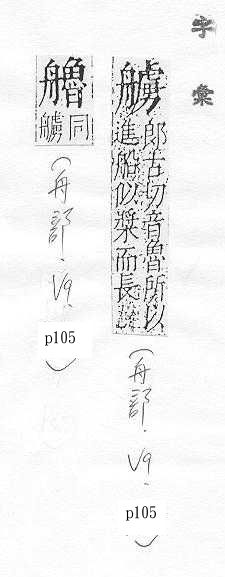 字彙
艣
郎古切音魯所以
進船似槳而長
(舟部．V9．
p105
)
艪
同
艣
(舟部．V9．
p105
)